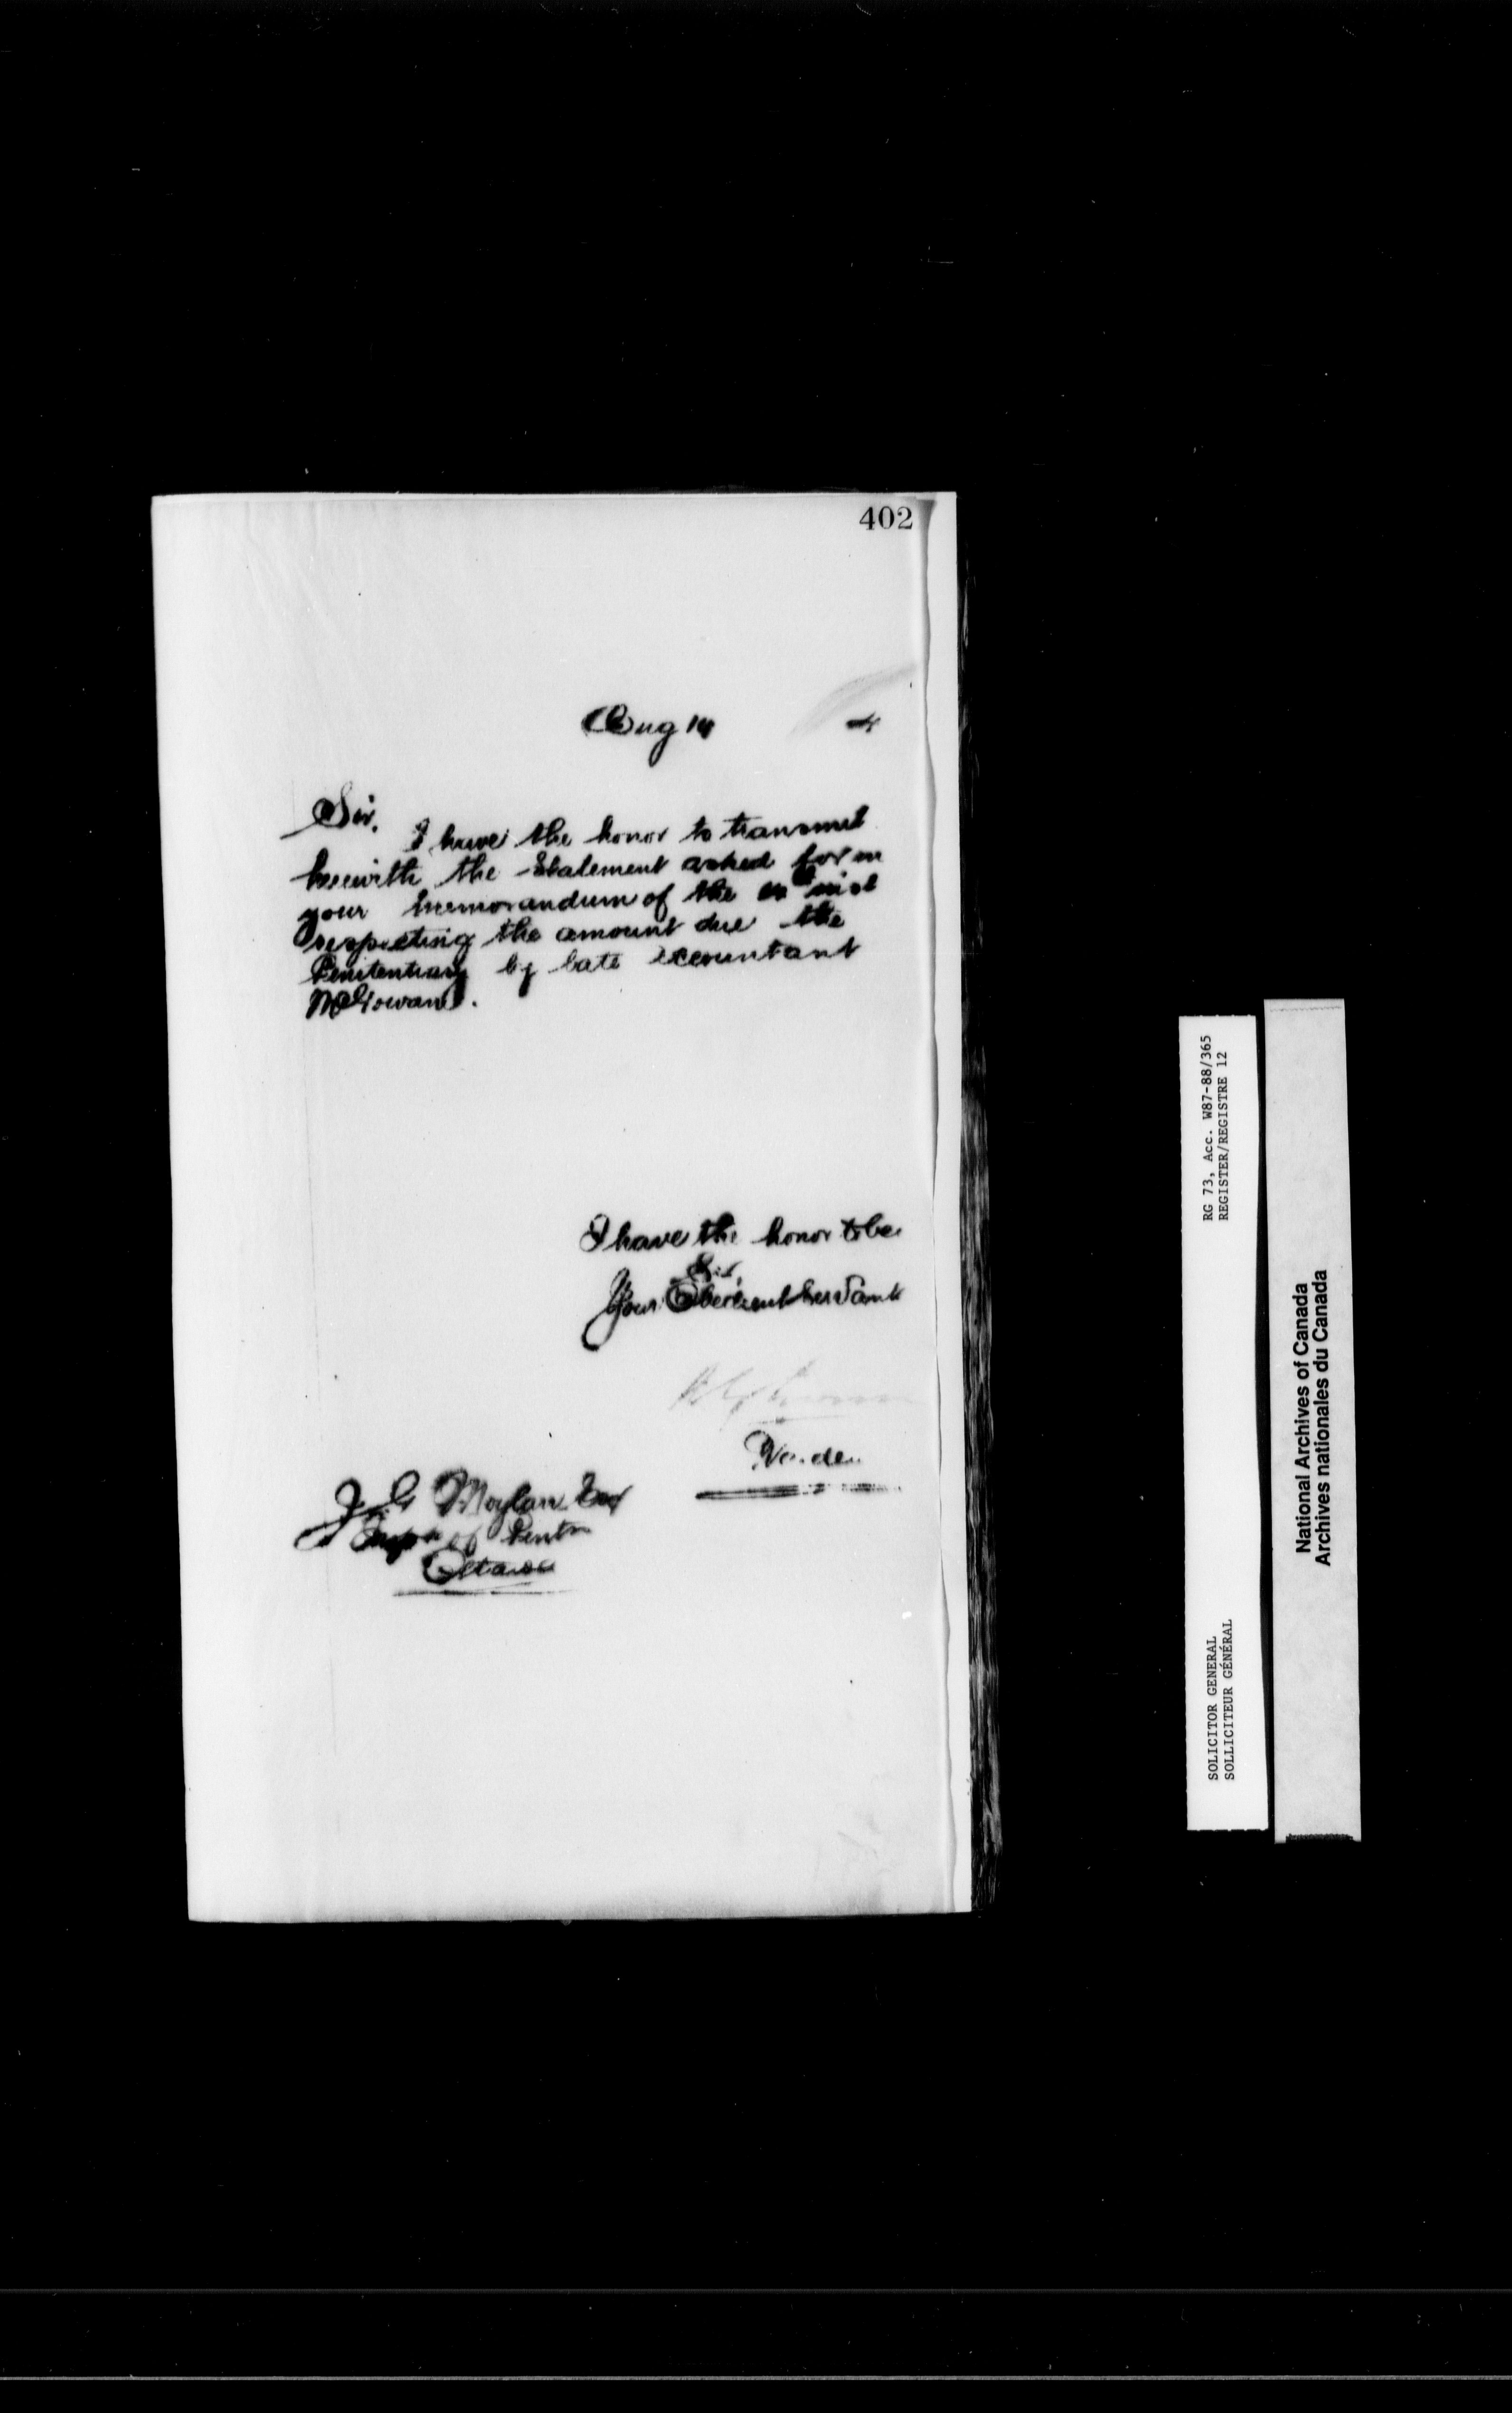 402
Aug 14 4
Sir,
I have the honor to transmit
herewith the Statement asked for in
your memorandum of the inst
respecting the amount due the
Penitentiary by late accountant
McGowan.
I have the honor to be
Sir,
Your Obedient Servant
Warden
J. G. Moylan Esq
Inspr of Pent
Ottawa
RG 73, Acc. W87-88/365
REGISTER/REGISTRE 12
SOLICITOR GENERAL
SOLLICITEUR GÉNÉRAL
National Archives of Canada
Archives nationales du Canada